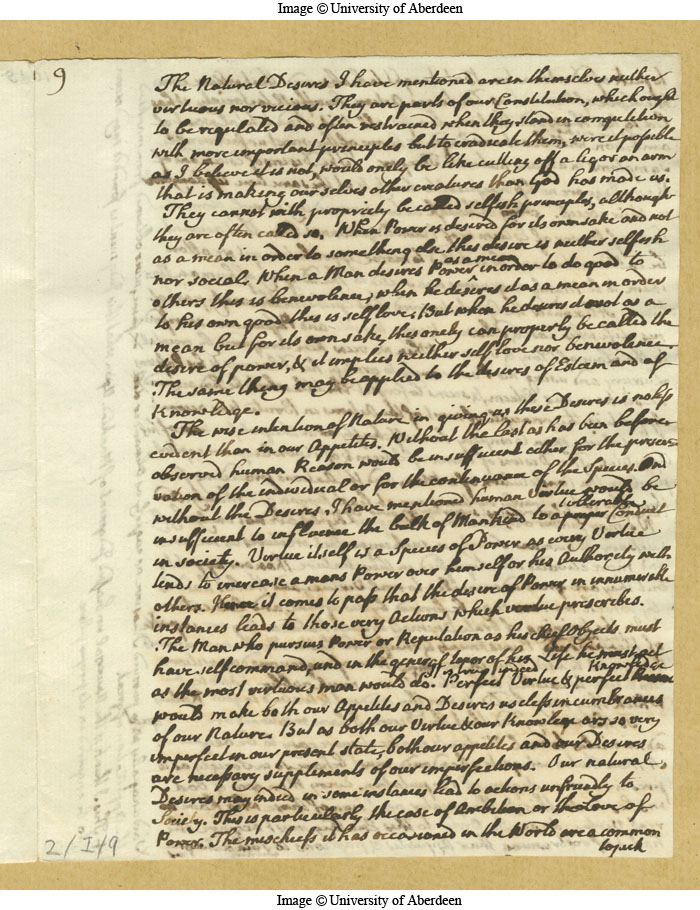 Image © University of Aberdeen
9
The Natural Desires I have mentioned are in themselves neither
virtuous nor vicious. They are parts of our Constitution, which ought
to be regulated and often restrained when they stand in competition
with more important principles but to eradicate them, were it possible
as I believe it is not, would onely be like cutting off a leg or an arm
that is making our selves other creatures than God has made us.
They cannot with propriety be called selfish principles, although
they are often called so. When Power is desired for its own sake and not
as a mean in order to something else this desire is neither selfish
nor social. When a Man desires Power as a mean in order to do good to
others this is benevolence, when he desires it as a mean in order
to his own good this is self love; But when he desires it not as a
mean but for its own sake, this onely can properly be called the
desire of power, & it implies neither self love nor benevolence.
The same thing may be applied to the desires of Esteem and of
Knowledge.
The wise intention of Nature in giving us these Desires is no less
evident than in our Appetites. Without the last as has been before
observed human Reason would be insufficient either for the preser-
vation of the individual or for the continuance of the Species. And
without the Desires I have mentioned human Virtue would be
insufficient to influence the bulk of Mankind to a tolerable Conduct
in society. Virtue itself is a Species of Power as every Virtue
tends to increase a mans Power over himself or his Authority with
others. Hence it comes to pass that the desire of Power in innumerable
instances leads to those very Actions which virtue prescribes.
The Man who pursues Power or Reputation as his chief Objects must
have self command, and in the general tenor of his Life he must act
as the most virtuous man would do. Perfect Virtue indeed & perfect Knowledge
would make both our Appetites and Desires useless incumbrances
of our Nature. But as both our Virtue & our Knowlege are so very
imperfect in our present state, both our appetites and our Desires
are necessary supplements of our imperfections. Our natural
Desires may indeed in some instances lead to actions unfriendly to
Society. This is particularly the case of Ambition or the Love of
Power. The mischiefs it has occasioned in the World are a common
topick
2/I/9
Image © University of Aberdeen